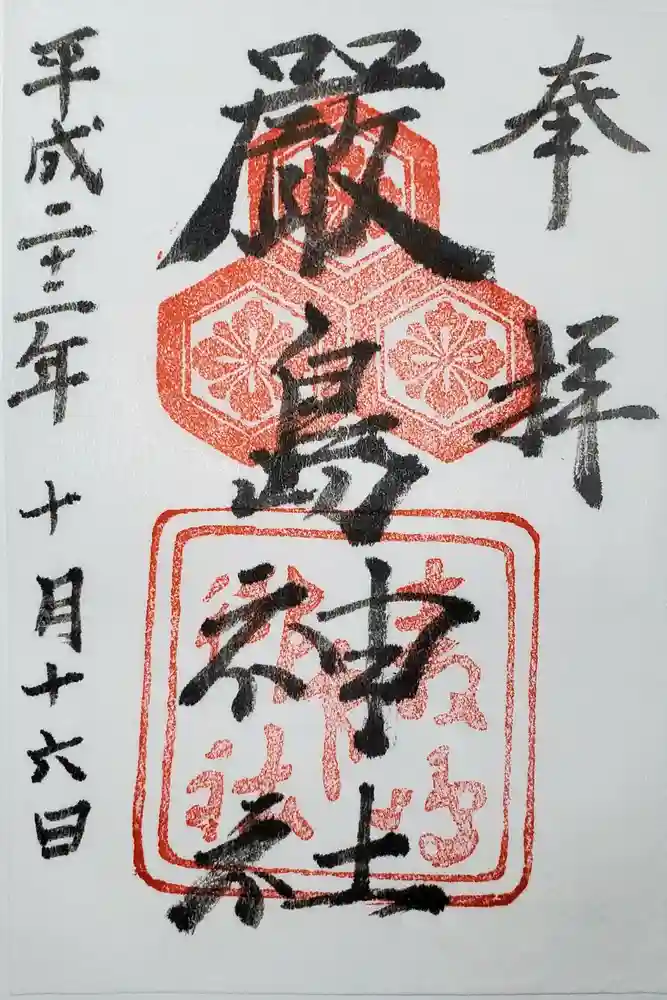 奉拝
嚴島神社
平成二十二年 十月十六日